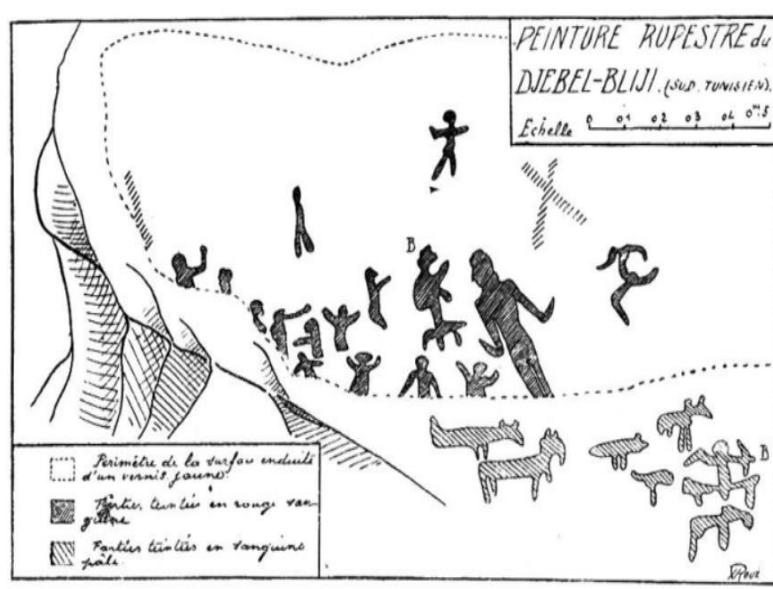 PEINTURE RUPESTRE du
DJEBEL-BLIJI. (SUD. TUNISIEN).
Echelle 0 01 02 03 04 0m.5
B
B
Périmètre de la surface enduite
d'un vernis jaune.
Parties teintées en rouge san-
guine
Parties teintées en sanguine
pâle.
Roux